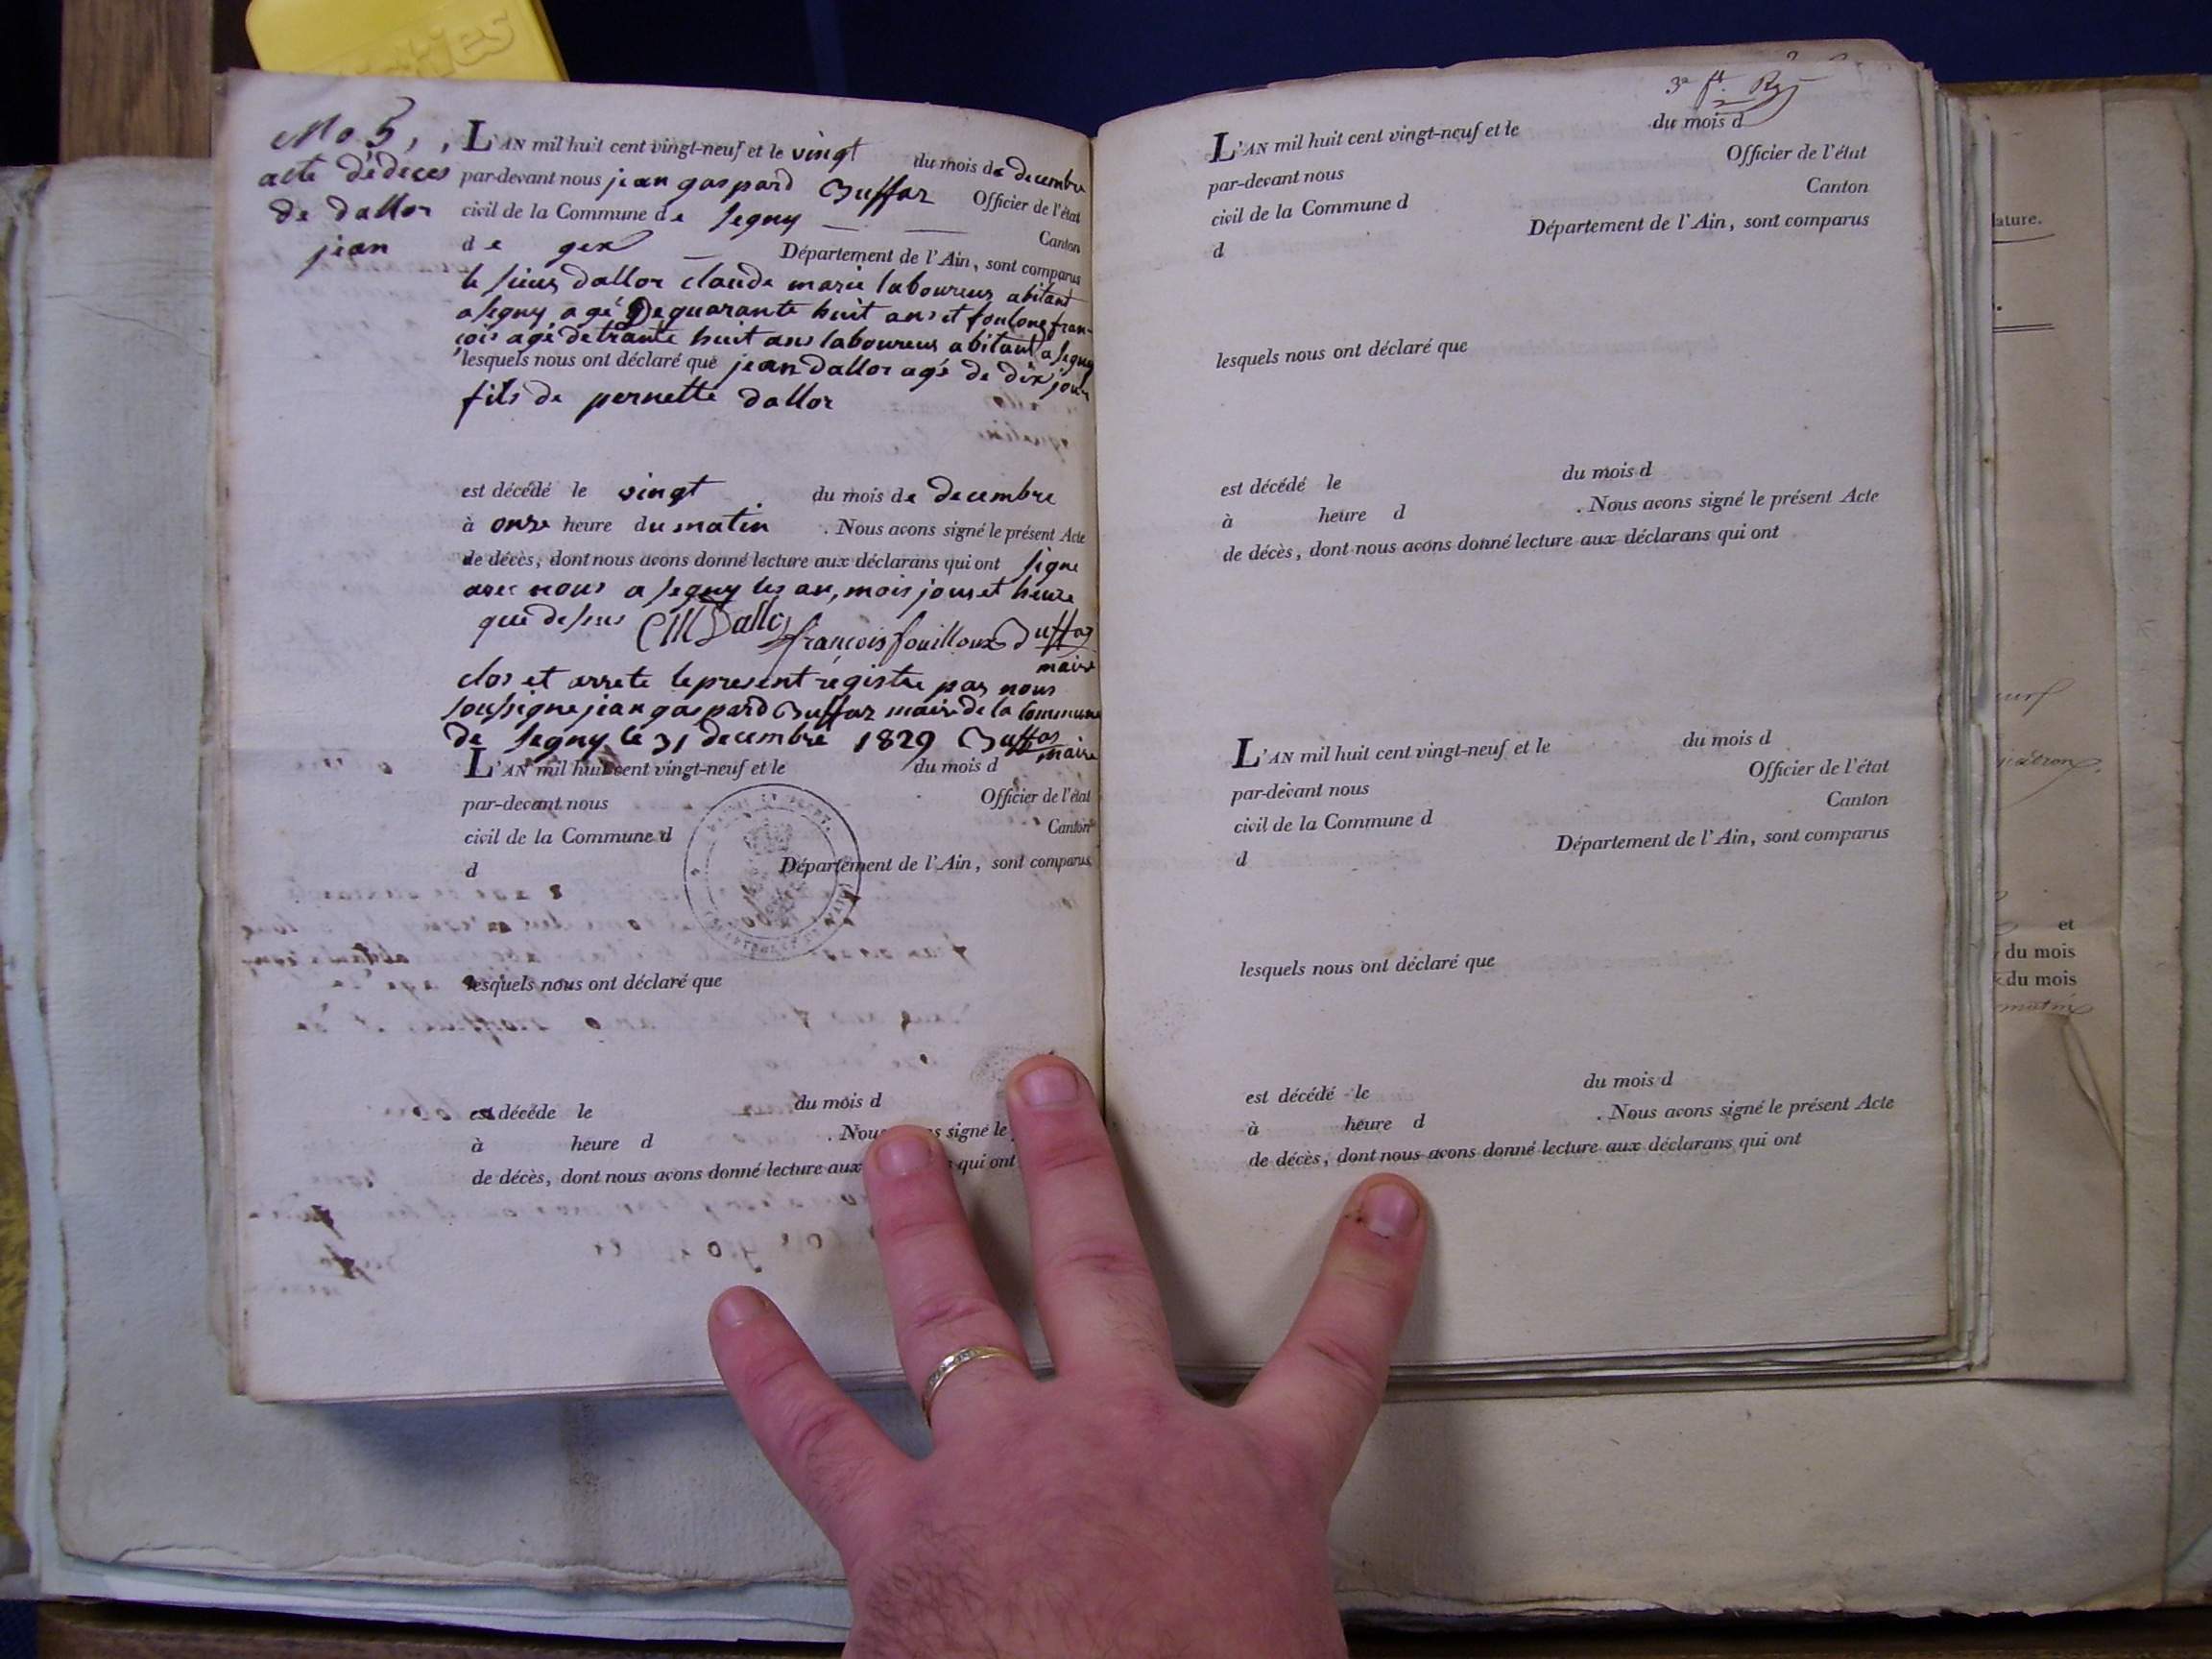 No 5,,
acte dédeces
de dallor
jean
L'AN mil huit cent vingt-neuf et le vingt du mois de decembre
par-devant nous jean gaspard Buffaz Officier de l'état
civil de la Commune de Segny Canton
de gex Département de l'Ain, sont comparus
le sieur dallor claude marie laboureur abitant
a segny agé De quarante huit ans et foulong fran-
cois agé de trante huit ans laboureur abitant a segny
lesquels nous ont déclaré que jean dallor agé de dix jour
fils de pernette dallor
est décédé le vingt du mois de decembre
à onze heure du matin . Nous avons signé le présent Acte
de décès, dont nous avons donné lecture aux déclarans qui ont signe
avec nous a segny les an, mois jour et heure
que desus CMDallor francois fouilloux Buffaz
maire
clos et arrete le present régistre par nous
soussigne jean gaspard Buffaz maire de la commune
de segny le 31 decembre 1829 Buffaz
maire
L'AN mil huit cent vingt-neuf et le du mois d
par-devant nous Officier de l'état
civil de la Commune d Canton
d Département de l'Ain, sont comparus
lesquels nous ont déclaré que
est décéde le du mois d
à heure d . Nous signé le
de décès, dont nous avons donné lecture aux qui ont
3e
L'AN mil huit cent vingt-neuf et le du mois d
par-devant nous Officier de l'état
civil de la Commune d Canton
d Département de l'Ain, sont comparus
lesquels nous ont déclaré que
est décédé le du mois d
à heure d . Nous avons signé le présent Acte
de décès, dont nous avons donné lecture aux déclarans qui ont
L'AN mil huit cent vingt-neuf et le du mois d
par-devant nous Officier de l'état
civil de la Commune d Canton
d Département de l'Ain, sont comparus
lesquels nous ont déclaré que
est décédé le du mois d
à heure d . Nous avons signé le présent Acte
de décès, dont nous avons donné lecture aux déclarans qui ont
ature.
et
du mois
du mois
matin